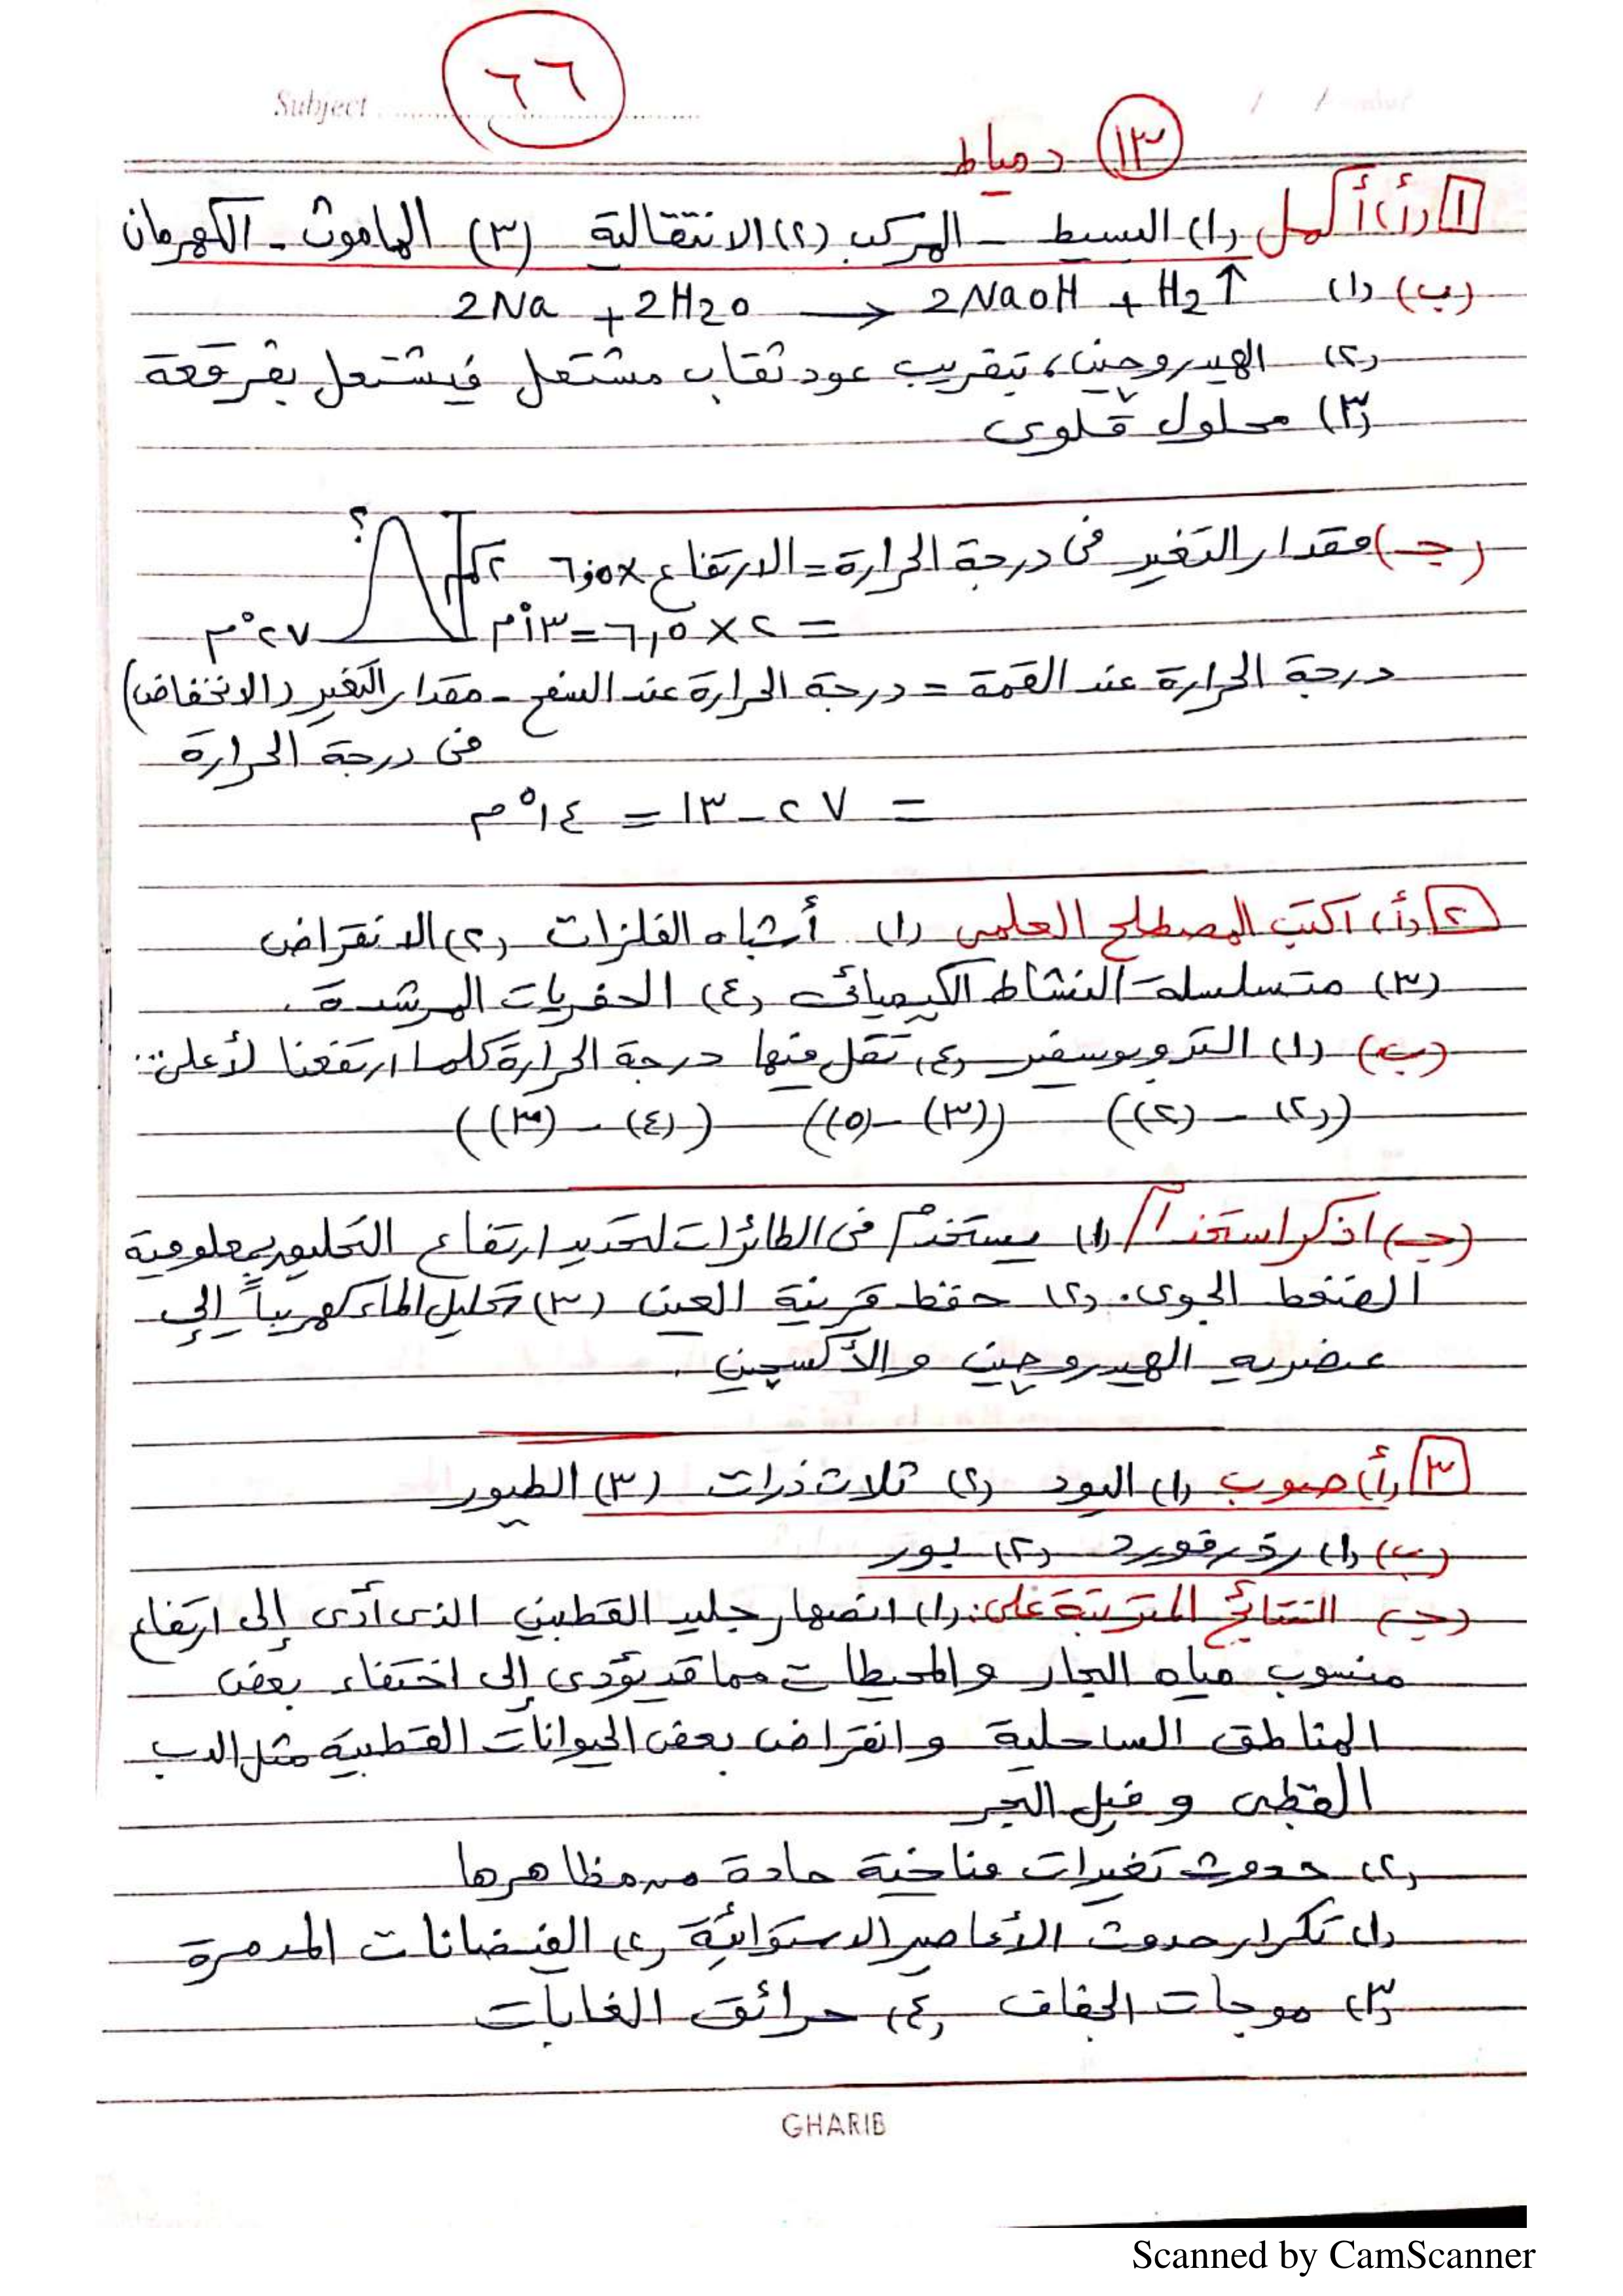 Subject
٦٦
١٣ دمياط
١ (أ) أكمل (١) البسيط - المركب (٢) الانتقالية (٣) الماموث - الكهرمان
(ب) (١) 2Na + 2H2O → 2NaOH + H2↑
(٢) الهيدروچين، بتقريب عود ثقاب مشتعل فيشتعل بفرقعة
(٣) محلول قلوى
(جـ) مقدار التغير فى درجة الحرارة = الارتفاع × ٦,٥
= ٢ × ٦,٥ = ١٣°م
٢كم
؟
٢٧°م
درجة الحرارة عند القمة = درجة الحرارة عند السفح - مقدار التغير (الانخفاض)
فى درجة الحرارة
= ٢٧ - ١٣ = ١٤°م
٢ (أ) اكتب المصطلح العلمى (١) أشباه الفلزات (٢) الانقراض
(٣) متسلسلة النشاط الكيميائى (٤) الحفريات المرشدة.
(ب) (١) التروبوسفير (٤) تقل فيها درجة الحرارة كلما ارتفعنا لأعلى...
((٢) - (٢)) ((٣) - (٥)) ((٤) - (٣))
(جـ) اذكر استخدام (١) يستخدم فى الطائرات لتحديد ارتفاع التحليق بمعلومية
الضغط الجوى. (٢) حفظ قرنية العين (٣) تحليل الماء كهربياً إلى
عنصريه الهيدروچين والأكسچين.
٣ (أ) صوب (١) اليود (٢) ثلاث ذرات (٣) الطيور
(ب) (١) رذرفورد (٢) بور
(جـ) النتائج المترتبة على: (١) انصهار جليد القطبين الذى أدى إلى ارتفاع
منسوب مياه البحار والمحيطات مما قد يؤدى إلى اختفاء بعض
المناطق الساحلية وانقراض بعض الحيوانات القطبية مثل الدب
القطبى وفيل البحر
(٢) حدوث تغيرات مناخية حادة من مظاهرها
(١) تكرار حدوث الأعاصير الاستوائية (٢) الفيضانات المدمرة
(٣) موجات الجفاف (٤) حرائق الغابات
GHARIB
Scanned by CamScanner